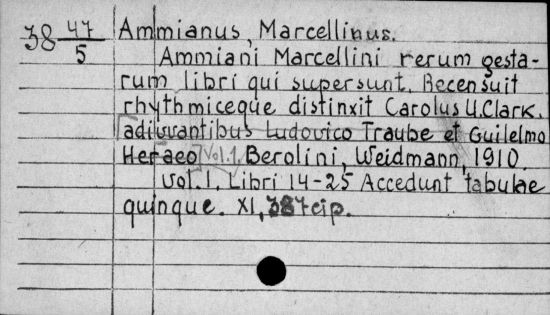 38 47/5 Ammianus, Marcellinus.
Ammiani Marcellini rerum gesta-
rum libri qui supersunt. Recensuit
rhythmiceque distinxit Carolus U. Clark.
adiuvantibus Ludovico Traube et Guilelmo
Heraeo Vol. 1. Berolini, Weidmann, 1910.
Vol. 1. Libri 14-25 Accedunt tabulae
quinque. XI, 387